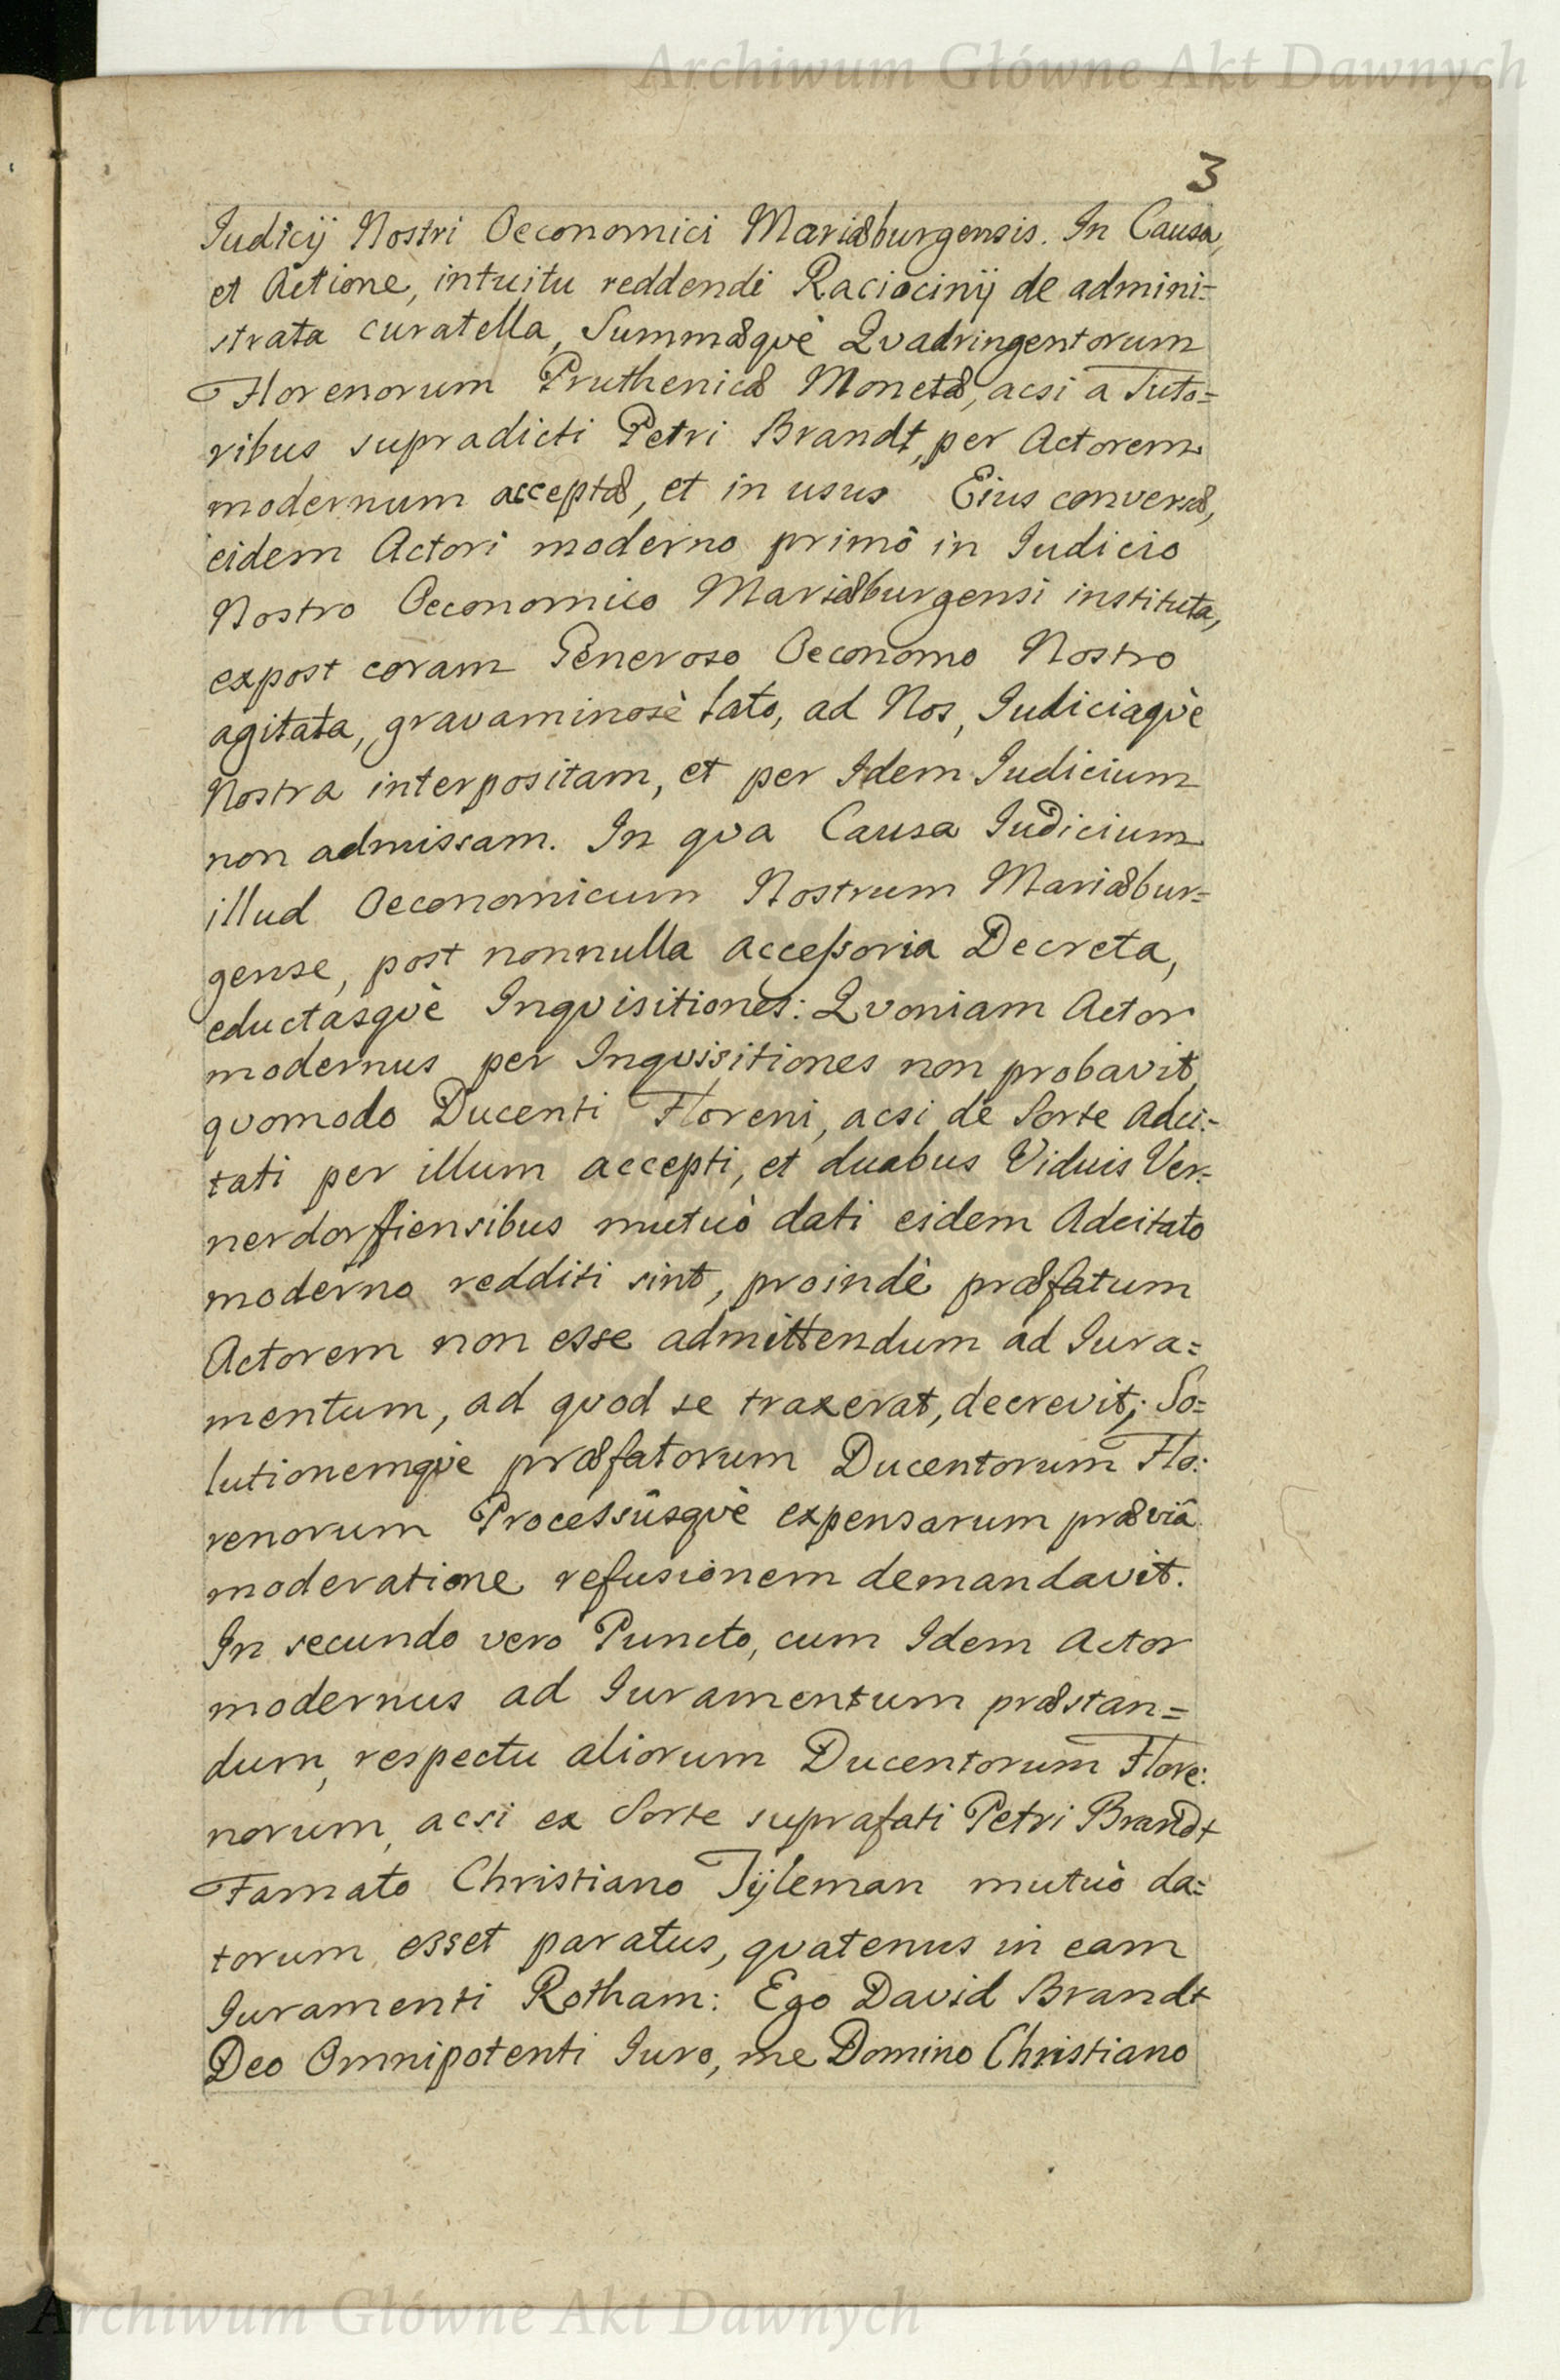 Archiwum Główne Akt Dawnych
3
Iudicij Nostri Oeconomici Mariæburgensis. In Causa,
et Actione, intuitu reddendi Raciocinij de admini=
strata curatella, Summæqvè Qvadringentorum
Florenorum Pruthenicæ Monetæ, acsi a Tuto=
ribus supradicti Petri Brandt, per Actorem
modernum acceptæ, et in usus Eius conversæ,
eidem Actori moderno primô in Iudicio
Nostro Oeconomico Mariæburgensi instituta,
expost coram Generoso Oeconomo Nostro
agitata, gravaminosè lato, ad Nos, Iudiciaqvè
Nostra interpositam, et per Idem Iudicium
non admissam. In qva Causa Iudicium
illud Oeconomicum Nostrum Mariæbur=
gense, post nonnulla accessoria Decreta,
eductasqvè Inqvisitiones: Qvoniam Actor
modernus per Inqvisitiones non probavit,
qvomodo Ducenti Floreni, acsi de Sorte Adci=
tati per illum accepti, et duabus Viduis Ver=
nerdorffiensibus mutuò dati eidem Adcitato
moderno redditi sint, proindè præfatum
Actorem non esse admittendum ad Iura=
mentum, ad qvod se traxerat, decrevit; So=
lutionemqvè præfatorum Ducentorum Flo:
renorum Processûsqvè expensarum præviâ
moderatione refusionem demandavit.
In secundo vero Puncto, cum Idem Actor
modernus ad Iuramentum præstan=
dum, respectu aliorum Ducentorum Flore:
norum, acsi ex Sorte suprafati Petri Brandt
Famato Christiano Tÿleman mutuò da=
torum, esset paratus, qvatenus in eam
Iuramenti Rotham: Ego David Brandt
Deo Omnipotenti Iuro, me Domino Christiano
Archiwum Główne Akt Dawnych